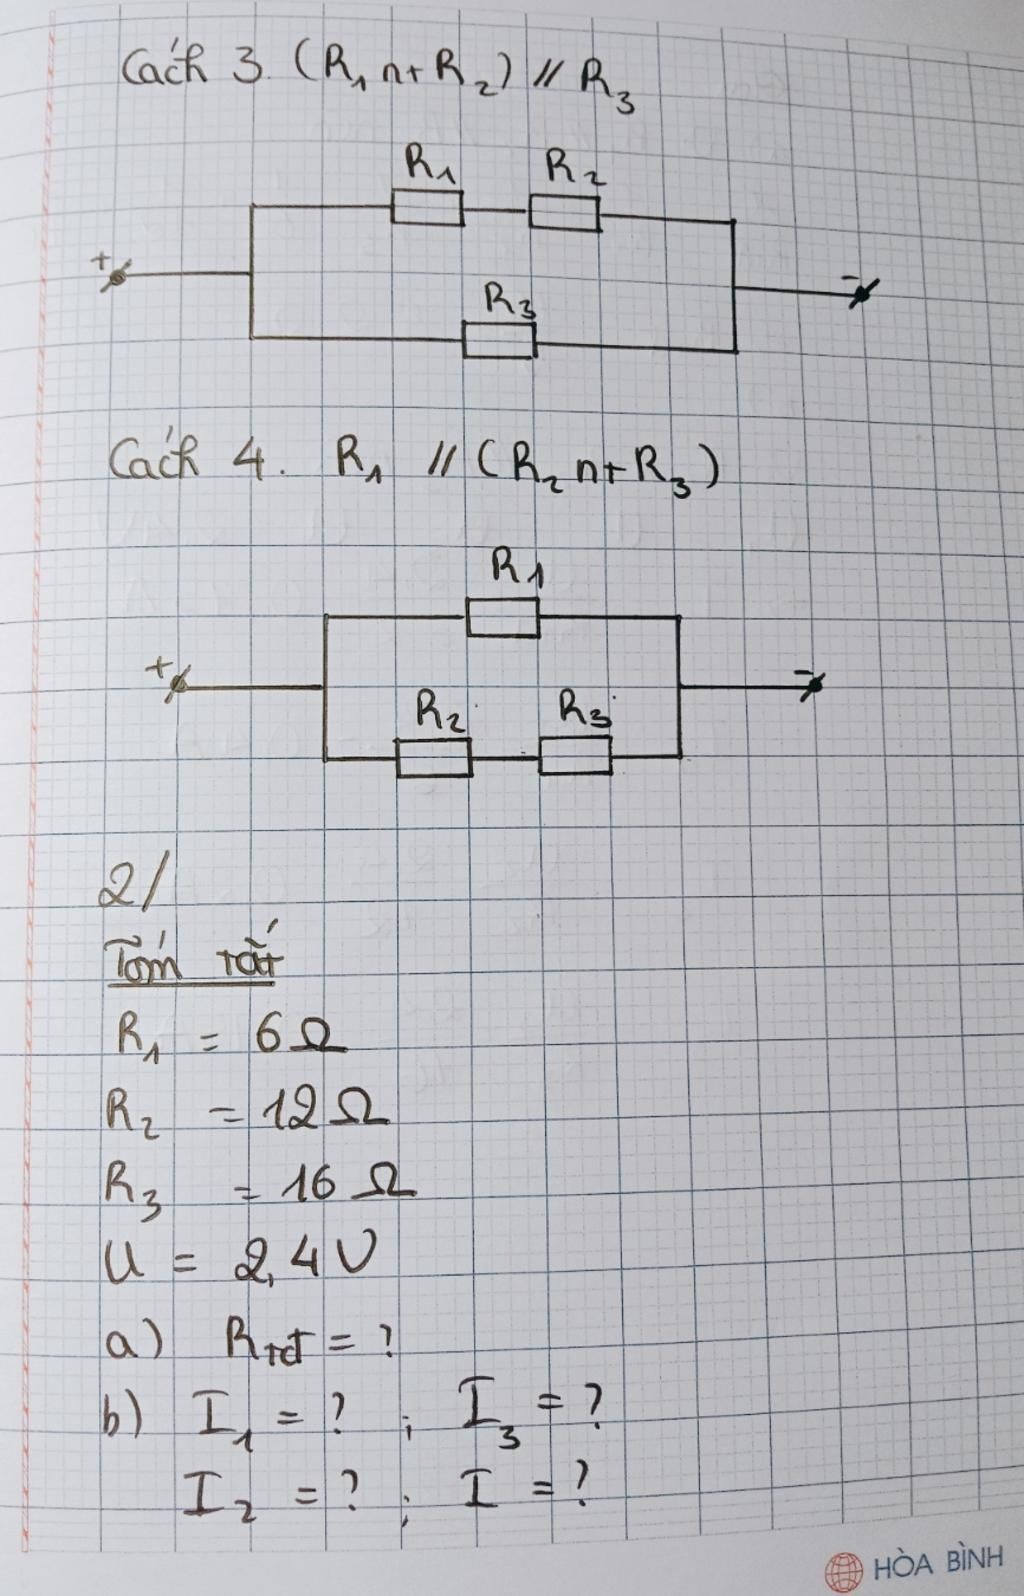 Cách 3. (R₁ nt R₂) // R₃
R₁ R₂
+ -
R₃
Cách 4. R₁ // (R₂ nt R₃)
R₁
+ -
R₂ R₃
2/
Tóm tắt
R₁ = 6Ω
R₂ = 12Ω
R₃ = 16Ω
U = 2,4V
a) Rtđ = ?
b) I₁ = ? ; I₃ = ?
I₂ = ? ; I = ?
HÒA BÌNH